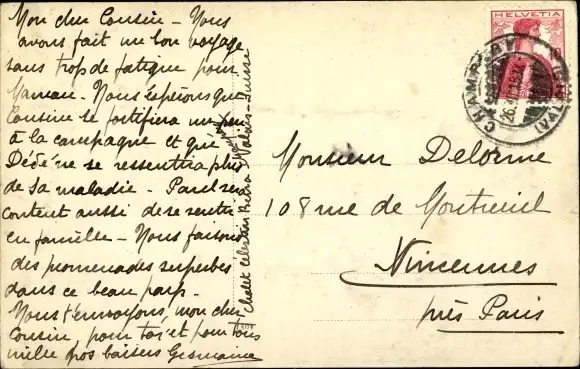 Mon cher Cousin - Nous
avons fait un bon voyage
sans trop de fatigue pour
Maman - Nous espérons que
Cousine se fortifiera un peu
à la campagne et que
Dédé ne se ressentira plus
de sa maladie - Paul sera
content aussi de se sentir
en famille - Nous faisons
des promenades superbes
dans ce beau pays -
Nous t'envoyons, mon cher
Cousin, pour toi et pour tous
mille gros baisers Germaine
Chalet Célestin Valais - Suisse
HELVETIA
CHAMPLAY
(VALAIS)
Monsieur Delorme
108 rue de Montreuil
Vincennes
près Paris